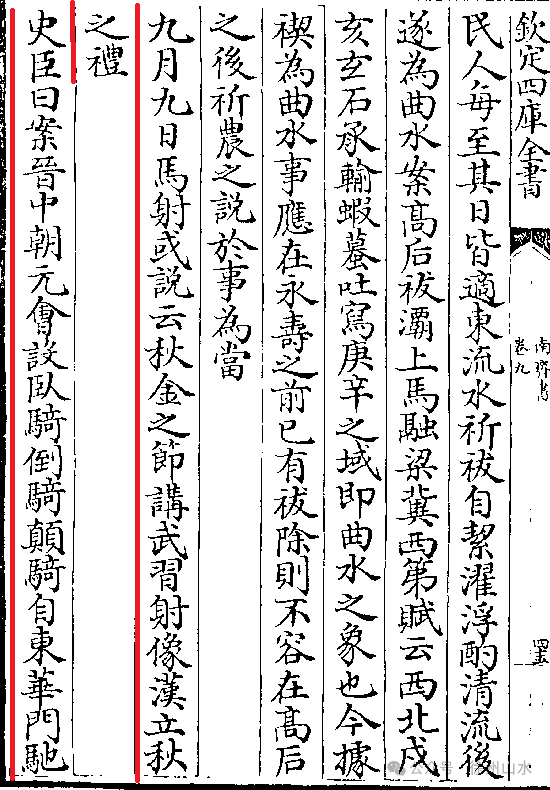 欽定四庫全書
南齊書
卷九
民人每至其日皆適東流水祈祓自潔濯浮酌清流後
遂為曲水案高后祓灞上馬融梁冀西第賦云西北戍
亥玄石承輸蝦蟇吐寫庚辛之域即曲水之象也今據
禊為曲水事應在永壽之前已有祓除則不容在高后
之後祈農之說於事為當
九月九日馬射或說云秋金之節講武習射像漢立秋
之禮
史臣曰案晉中朝元會設臥騎倒騎顛騎自東華門馳